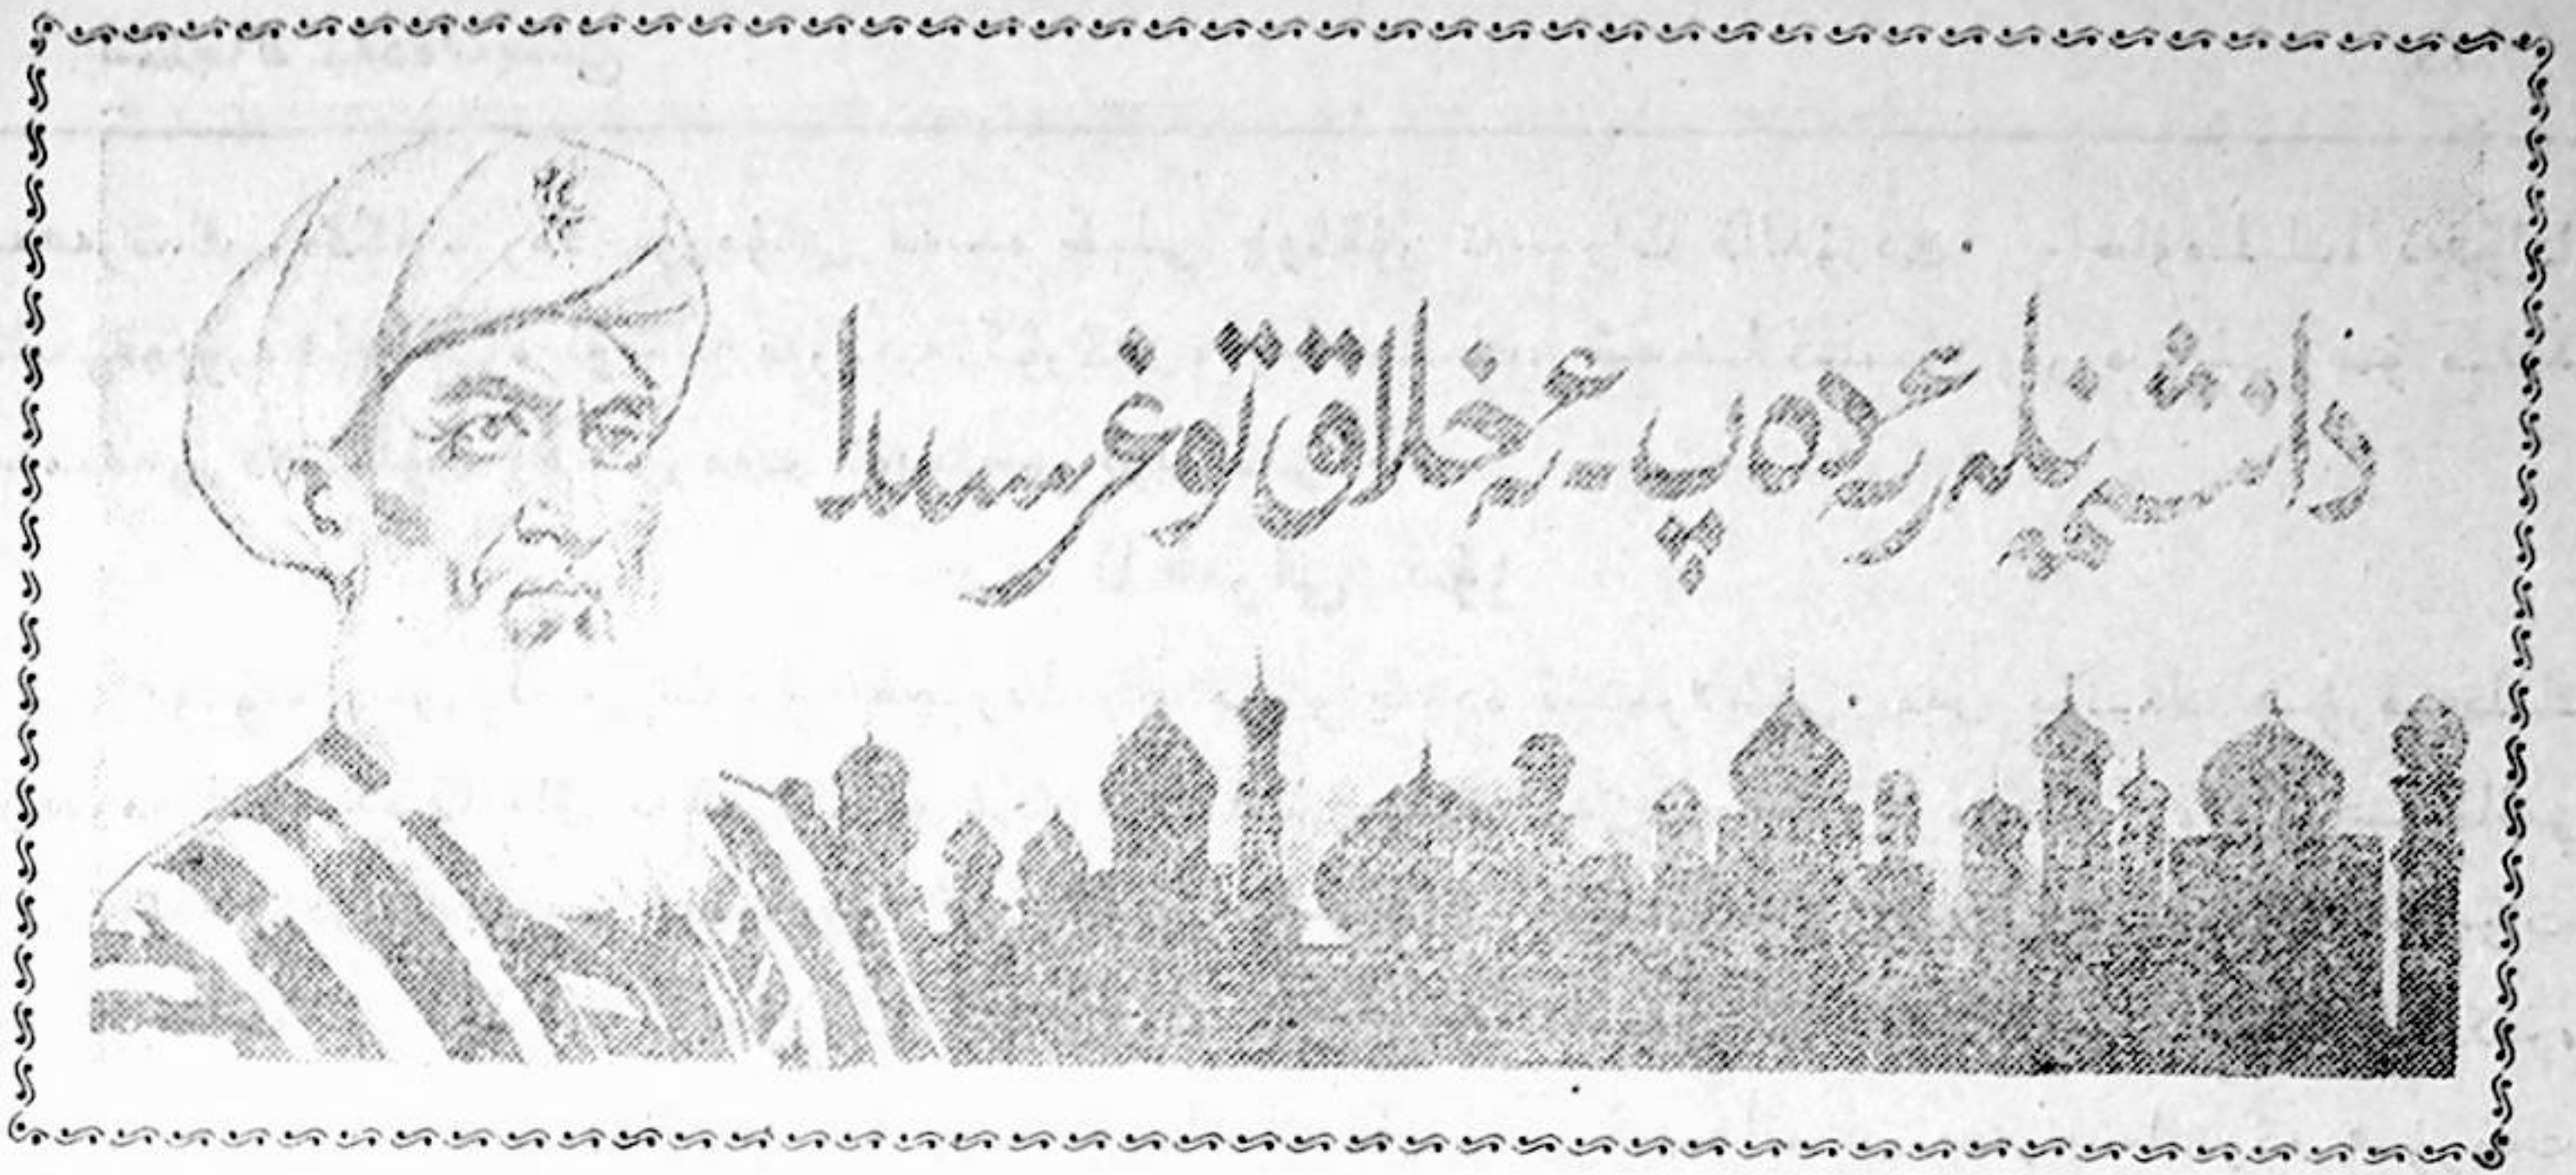 دانىشمەنلەر ئەدەپ-ئەخلاق توغرىسىدا